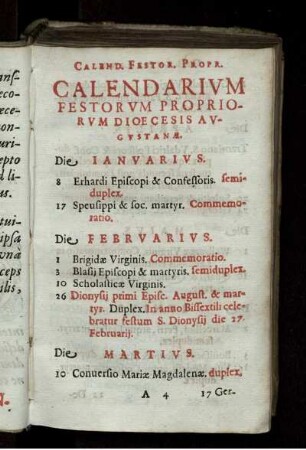 CALEND. FESTOR. PROPR.
CALENDARIVM
FESTORVM PROPRIO-
RVM DIOECESIS AV-
GVSTANÆ.
Die IANVARIVS.
8 Erhardi Episcopi & Confessoris. semi-
duplex.
17 Speusippi & soc. martyr. Commemo-
ratio.
Die FEBRVARIVS.
1 Brigidæ Virginis. Commemoratio.
3 Blasii Episcopi & martyris. semiduplex.
10 Scholasticæ Virginis.
26 Dionysij primi Episc. August. & mar-
tyr. Duplex. In anno Bissextili cele-
bratur festum S. Dionysij die 27.
Februarij.
Die MARTIVS.
10 Conuersio Mariæ Magdalenæ. duplex.
A 4 17 Ger-